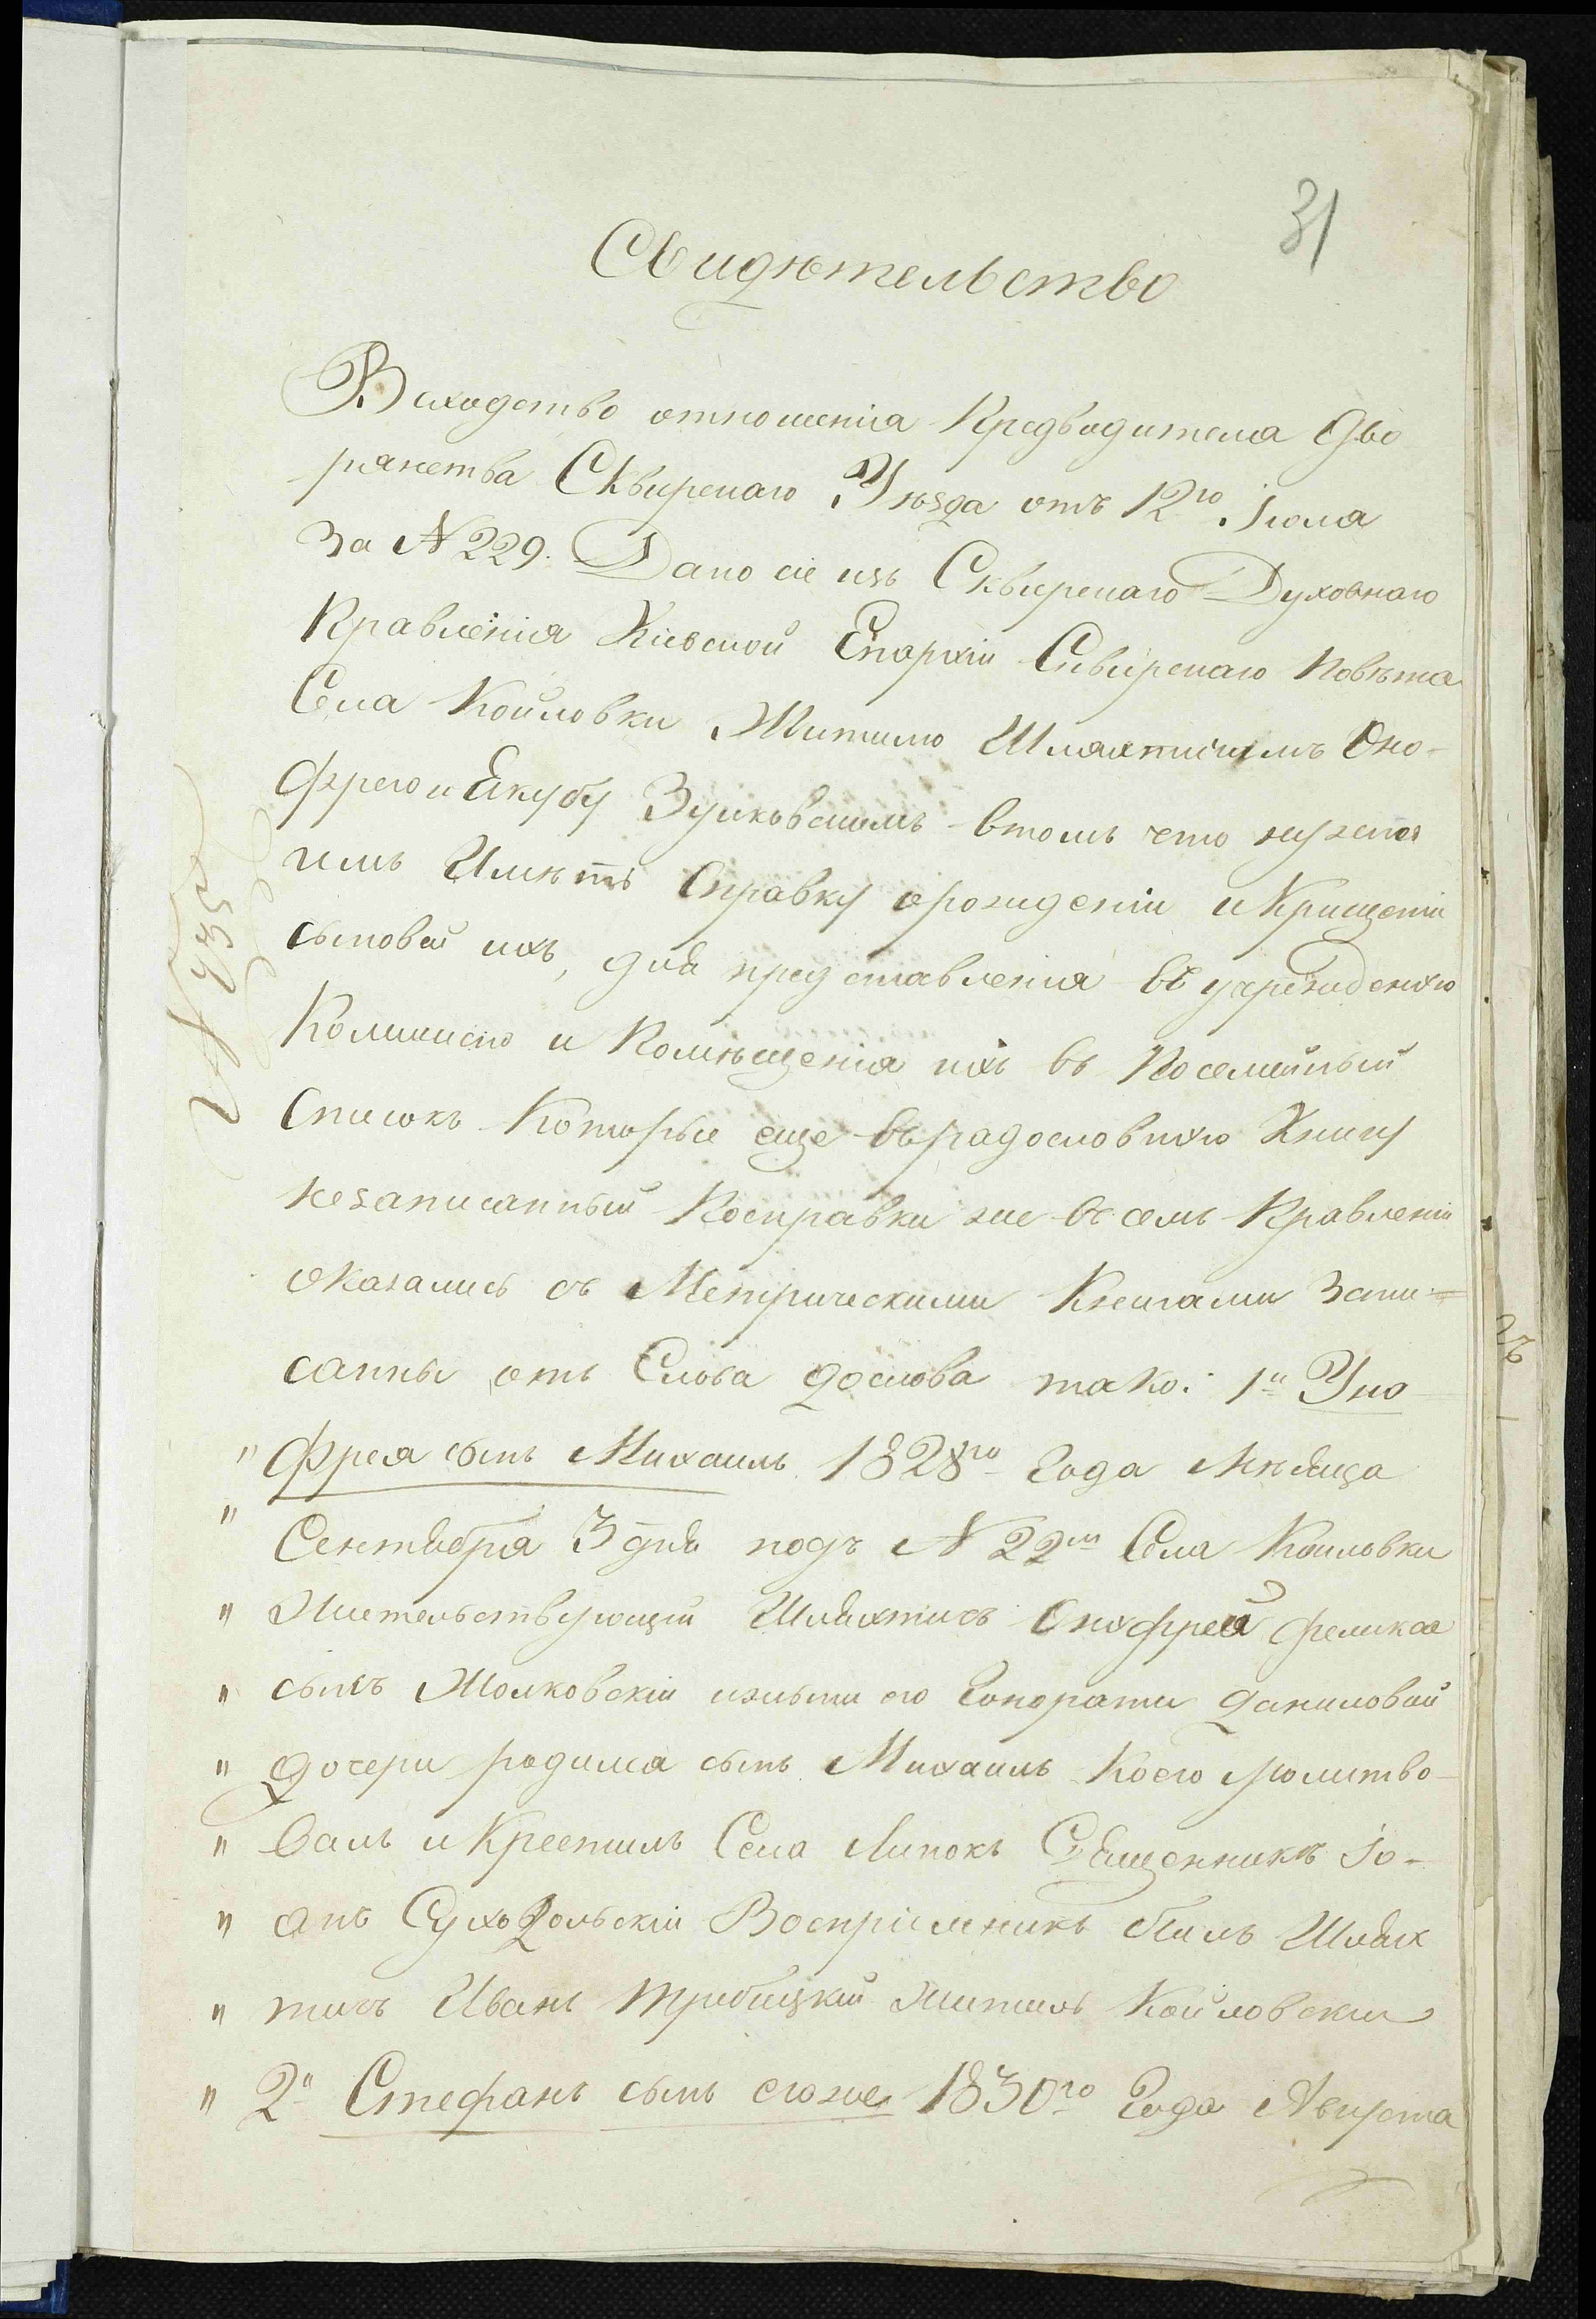 31
Свидѣтельство
Всходство отношенія Предводителя Дво
рянства Сквирскаго Уѣзда отъ 12го Іюля
За № 229. Дано сіе изъ Сквирскаго Духовнаго
Правленія Кіевской Епархіи Сквирскаго Повѣта
Села Койловки Жителю Шляхтичимъ Оно-
фрею и Якубу втомъ что нужно
имъ Имѣть Справку орождении и Крищении
сыновей ихъ, для представленія въ учрежденую
Коммисію и Помѣщенія ихъ въ Посемейный
Списокъ Которые еще въ радословную Книгу
незаписанный Посправки же въ семъ Правленіи
оказались съ Метрическими Книгами Запи=
санны отъ Слова дослова тако: 1й Уно
" фрея сынъ Михаилъ 1828го Года Мѣсяца
" Сентября 3 дня подъ № 22мъ Села Койловки
" Жительствующій Шляхтичъ Онуфрей феликса
" сынъ Жолковскій изжены его Гонораты Даниловой
" Дочери родился сынъ Михаилъ Коего молитво-
" валъ и Крестилъ Села Липокъ Священникъ Іо-
" анъ Суходольскій Воспріемникъ былъ Шлях
" тичъ Иванъ Трибицкій Житель Койловски
" 2й Стефанъ сынъ егоже 1830го Года Августа
№ 735